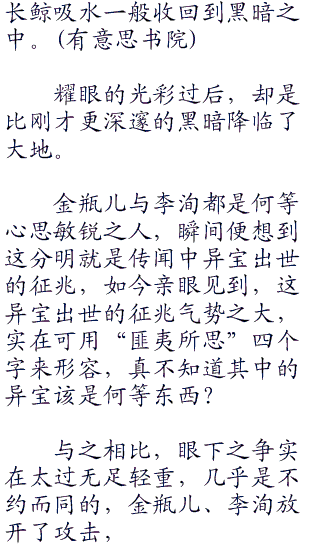 长鲸吸水一般收回到黑暗之
中。(有意思书院)
耀眼的光彩过后，却是
比刚才更深邃的黑暗降临了
大地。
金瓶儿与李洵都是何等
心思敏锐之人，瞬间便想到
这分明就是传闻中异宝出世
的征兆，如今亲眼见到，这
异宝出世的征兆气势之大，
实在可用“匪夷所思”四个
字来形容，真不知道其中的
异宝该是何等东西？
与之相比，眼下之争实
在太过无足轻重，几乎是不
约而同的，金瓶儿、李洵放
开了攻击，